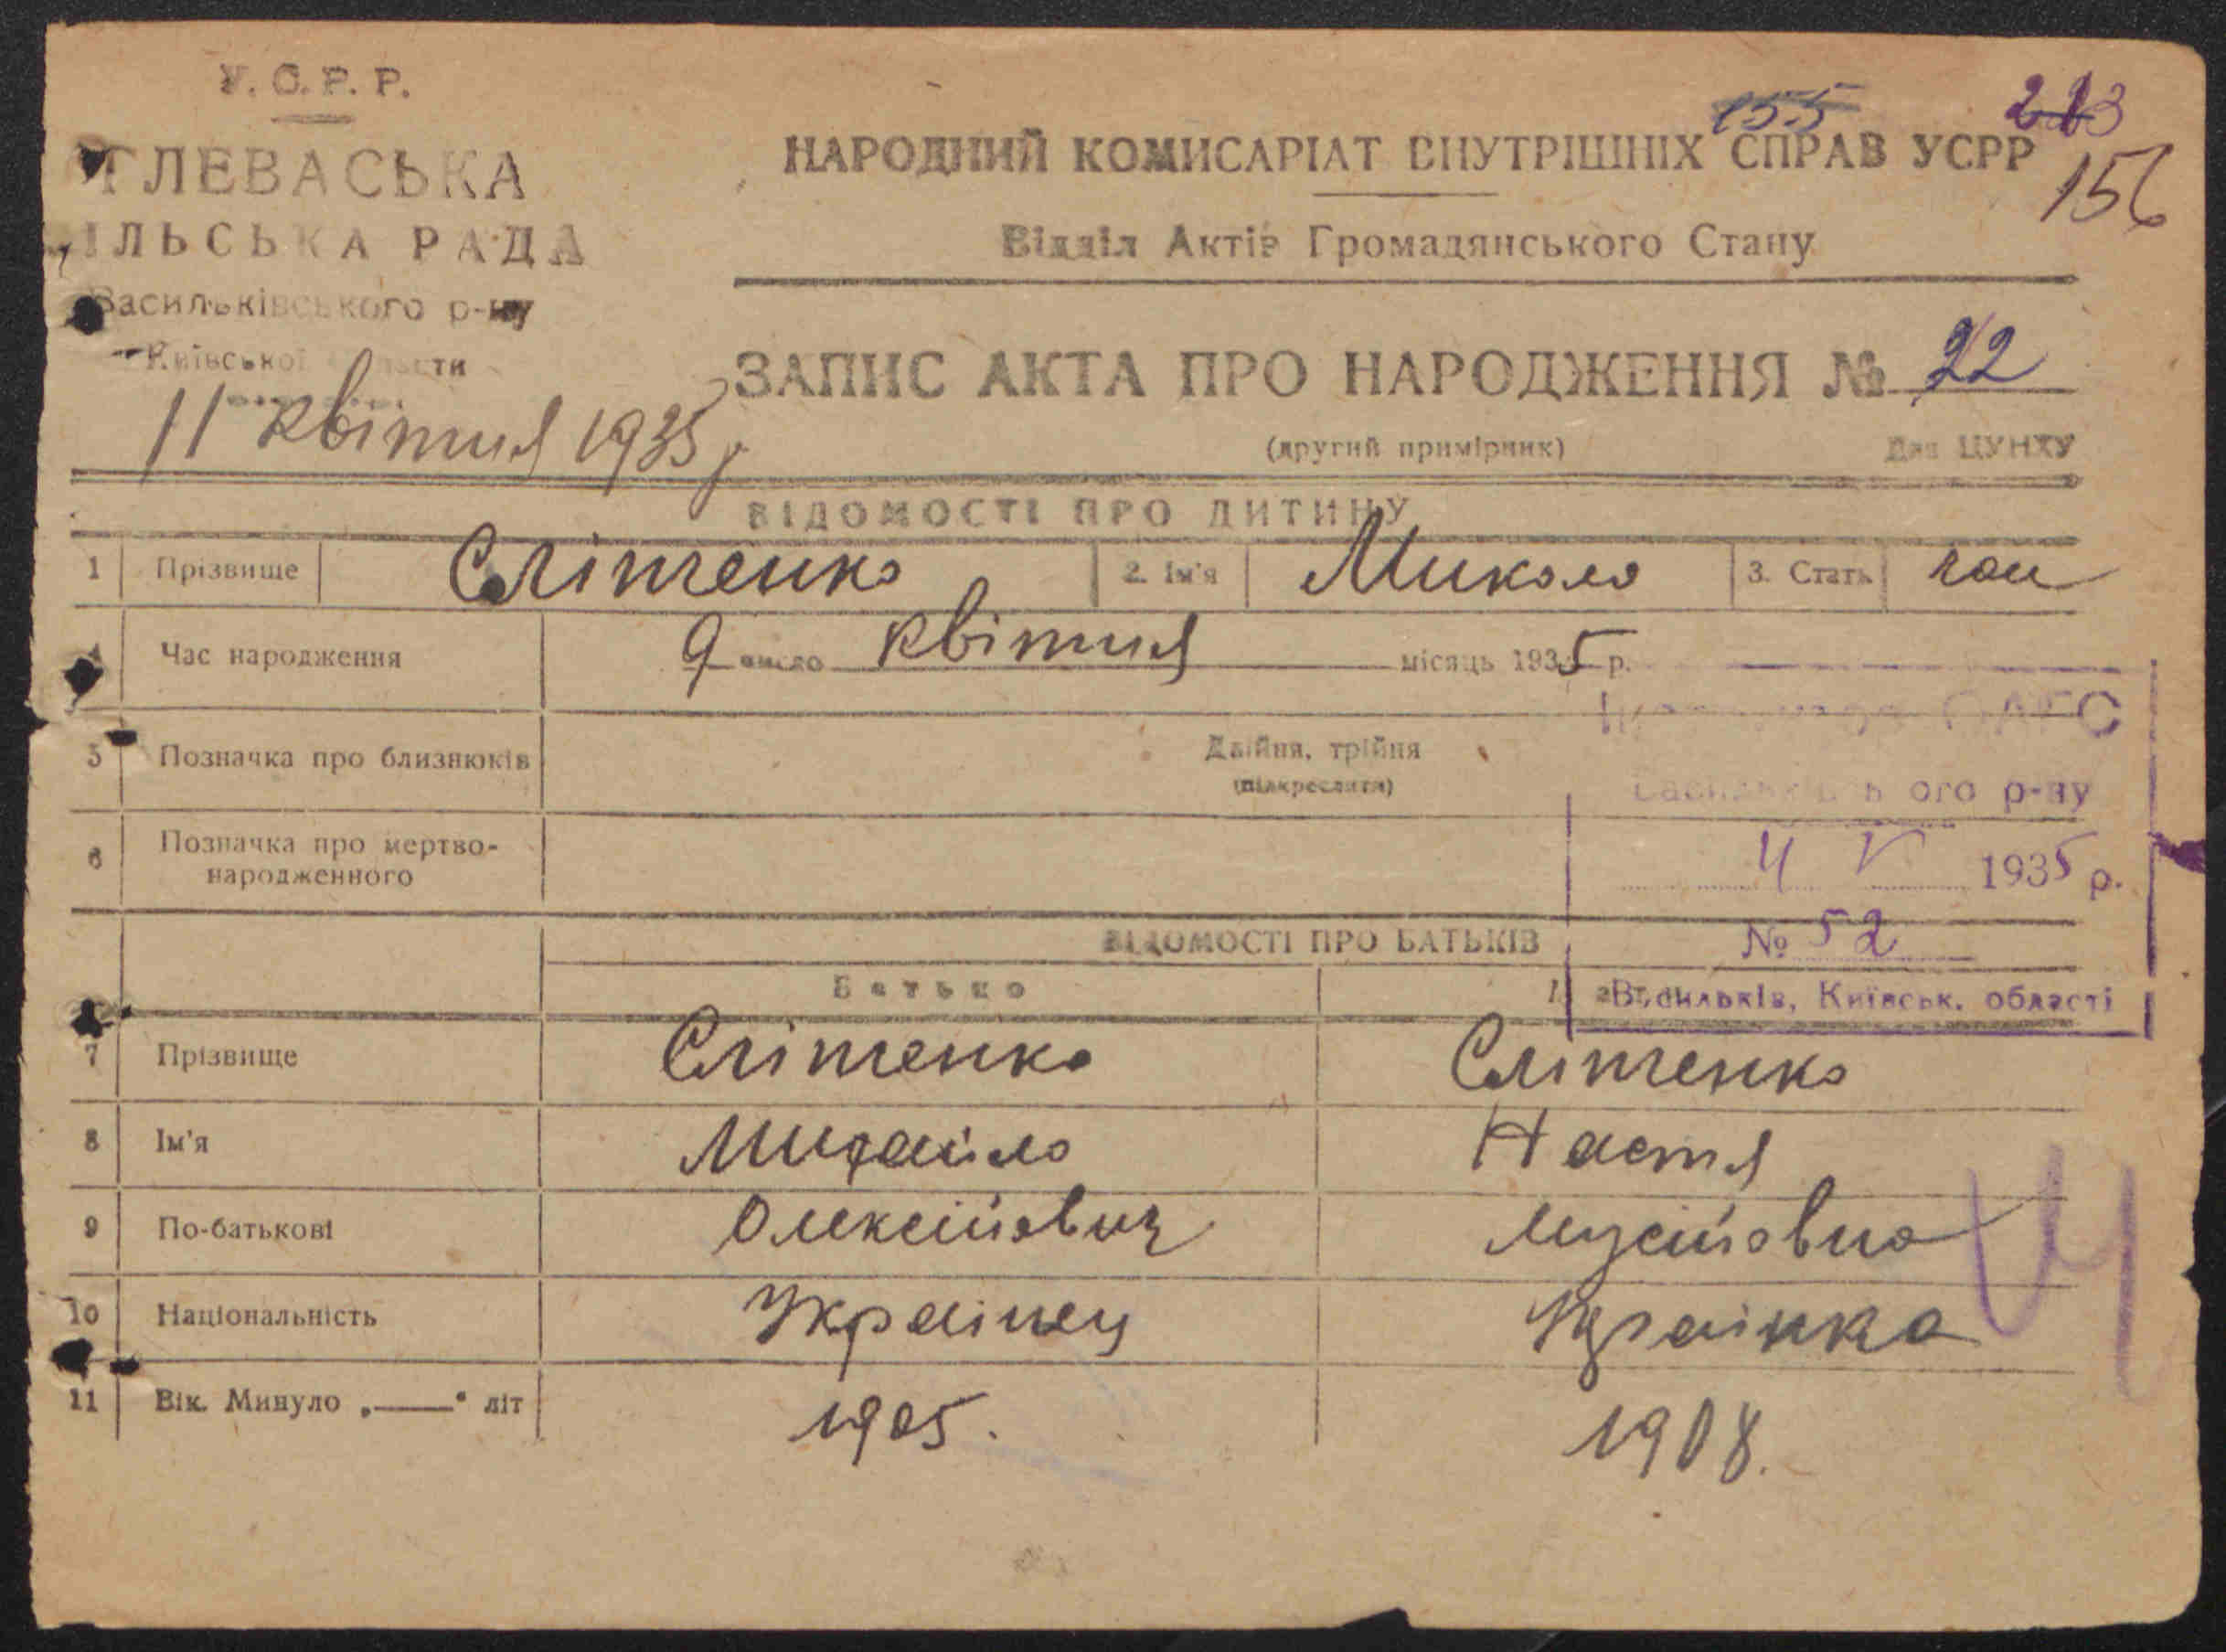 У.С.Р.Р.
ГЛЕВАСЬКА
ІЛЬСЬКА РАДА
Васильківського р-ну
Київської области
11 квітня 1935 р
155
213
156
НАРОДНИЙ КОМИСАРІАТ ВНУТРІШНІХ СПРАВ УСРР
Відділ Актів Громадянського Стану
ЗАПИС АКТА ПРО НАРОДЖЕННЯ № 22
(другий примірник) Для ЦУНХУ
ВІДОМОСТІ ПРО ДИТИНУ
1 Прізвище Сліпченко 2. Ім'я Микола 3. Стать чол
4 Час народження 9 число квітня місяць 1935 р.
5 Позначка про близнюків Двійня, трійня
(підкреслити)
6 Позначка про мертво-
народженного
ОАГС
Васильківського р-ну
4 V 1935 р.
№ 52
Васильків, Київськ. області
ВІДОМОСТІ ПРО БАТЬКІВ
Батько
7 Прізвище Сліпченко Сліпченко
8 Ім'я Михайло Настя
9 По-батькові Олексійович Мусійовна
10 Національність Українец Українка
11 Вік. Минуло „——“ літ 1905. 1908.
Ч